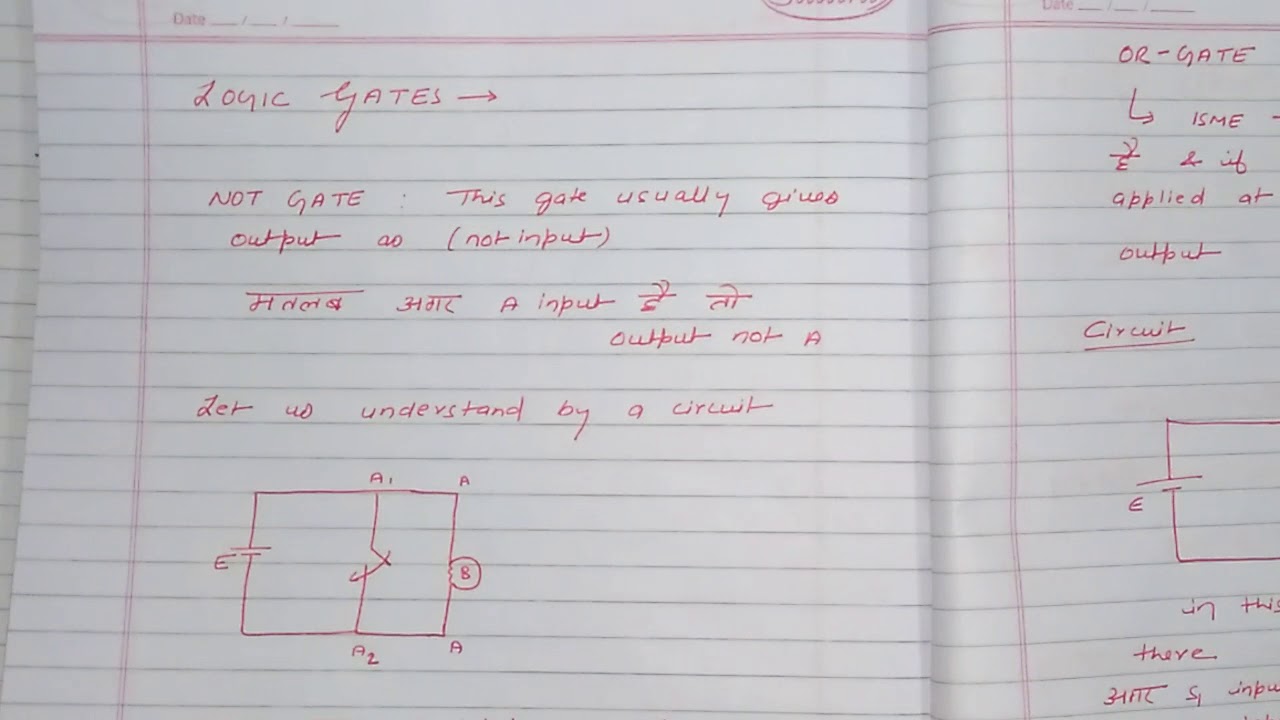 Date __/__/__
LOGIC GATES →
NOT GATE : This gate usually gives
output as (not input)
मतलब अगर A input है तो
output not A
Let us understand by a circuit
A1 A
E
B
A2 A
Date __/__/__
OR-GATE
↳ ISME
है & if
applied at
output
Circuit
E
in this
there
अगर S1